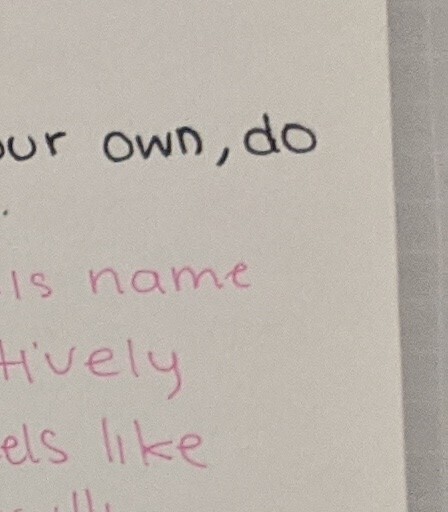 our own, do
.
is name
tively
els like